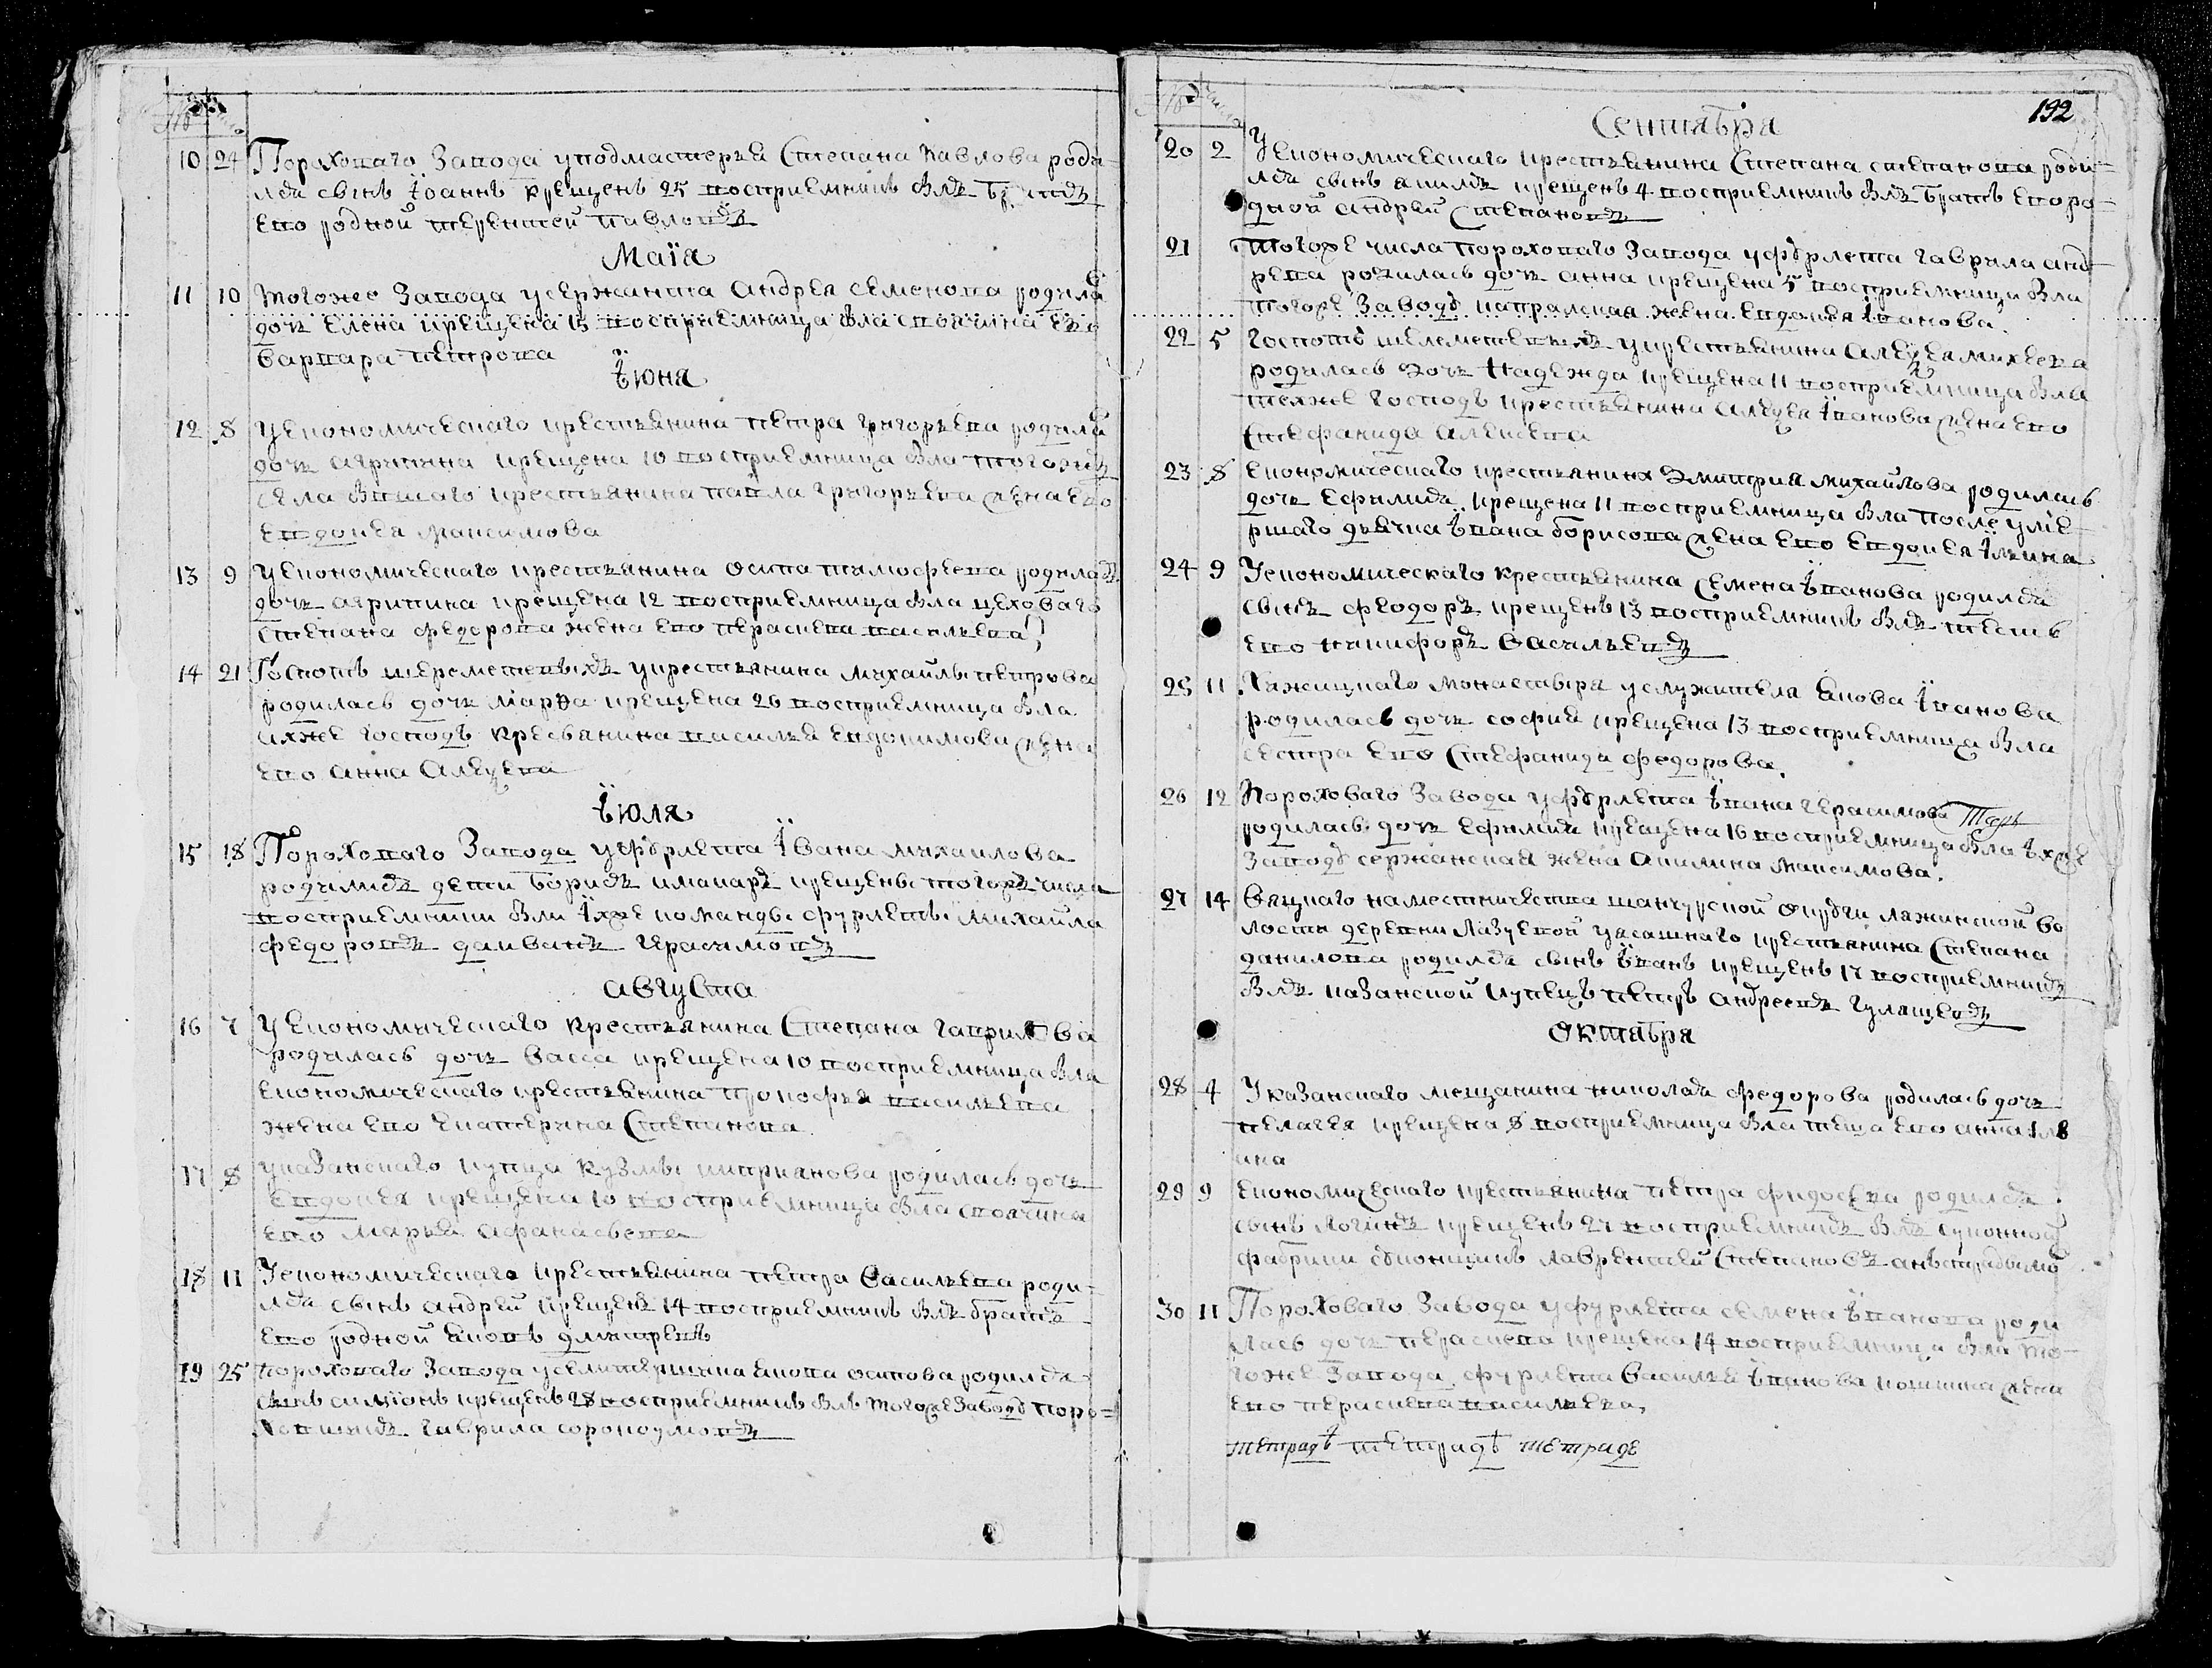 10 24 Пороховаго Завода уподмастерья Степана Павлова роди-
лся сынъ Іоаннъ крещенъ 25 восприемникъ былъ братъ
ево родной терентей павловъ
Маїа
11 10 тогоже Завода усержанта андрея семенова родила
дочь Елена крещена 15 восприемница была своячина ево
варвара петрова
Їюня
12 8 Уекономическаго крестьянина петра григорьева родила
дочь агрипина крещена 10 восприемница была тогожъ
села крестьянина павла григорьева жена ево
евдокея максимова
13 9 Уекономическаго крестьянина осипа тимофеева родилась
дочь агрипина крещена 12 восприемница была цеховаго
степана федорова жена ево параскева васильева
14 21 Господъ шереметевыхъ укрестьянина михаилы петрова
родилась дочь марѳа крещена 26 восприемница была
ихже господъ кресьянина василья евдокимова жена
ево анна алеѯева
Їюля
15 18 Пороховаго Завода уфурлета Івана михаилова
родились дети борисъ имакаръ крещены тогожъ числа
восприемники были їхже команды фурлеты михаила
федоровъ даиванъ герасимовъ
августа
16 7 Уекономическаго крестьянина Степана гаврилова
родилась дочь васса крещена 10 восприемница была
економическаго крестьянина прокофья васильева
жена ево екатерина Степанова
17 8 указанскаго купца кузмы киприанова родилась дочь
евдокея крещена 10 восприемница была своячина
ево марья афанасьева
18 11 Уекономическаго крестьянина петра васильева роди-
лся сынъ андрей крещенъ 14 восприемникъ былъ братъ
ево родной яковъ дмитревъ
19 25 пороховаго Завода уселитерщика якова осипова родился
сынъ симїонъ крещенъ 28 восприемникъ былъ тогоже Заводу поро-
ховщикъ гаврила сорокоумовъ
192
Сентября
20 2 Уекономическаго крестьянина Степана степанова роди-
лся сынъ акила крещенъ 4 восприемникъ былъ братъ ево ро-
дной андрей Степановъ
21 тогоже числа пороховаго Завода уфурлета гаврила анд-
реева родилась дочь анна крещена 5 восприемница была
тогоже Заводу капралская жена евдокея їванова
22 5 Господъ шелеметевыхъ укрестьянина алеѯея михеева
родилась дочь надежда крещена 11 восприемница была
техже господъ крестьянина алеѯея їванова жена ево
Стефанида алеѯеева
23 8 економическаго крестьянина дмитрия михайлова родилась
дочь ефимия крещена 11 восприемница была после уме-
ршаго дьячка їванa борисова жена ево евдокея Ільина
24 9 Уекономическаго крестьянина семена їванова родился
сынъ феодоръ крещенъ 13 восприемникъ былъ тесть
ево никифоръ васильевъ
25 11 монастыря услужителя якова їванова
родилась дочь софия крещена 13 восприемница была
сестра ево Стефанида федорова
26 12 пороховаго Завода уфурлета ївана герасимова
родилась дочь ефимия крещена 16 восприемница была їхже
Заводу сержанская жена акилина максимова.
27 14 вяцкаго наместничества шанчурской округи лажинской во
лости деревни уясашнаго крестьянина Степана
данилова родился сынъ їванъ крещенъ 17 восприемникъ
былъ казанской купецъ петръ андреевъ
октября
28 4 Указанскаго мещанина николая федорова родилась дочь
пелагея крещена 8 восприемница была теща ево анна іль
ина
29 9 економическаго крестьянина петра федосеева родился
сынъ логинъ крещенъ 27 восприемникъ былъ суконной
фабрики лаврентей Степановъ
30 11 Пороховаго Завода уфурлета семена їванова роди
лась дочь параскева крещена 14 восприемница была то-
гоже Завода фурлета василья їванова жена
ево параскева васильева
тетрадь тетрадь тетраде